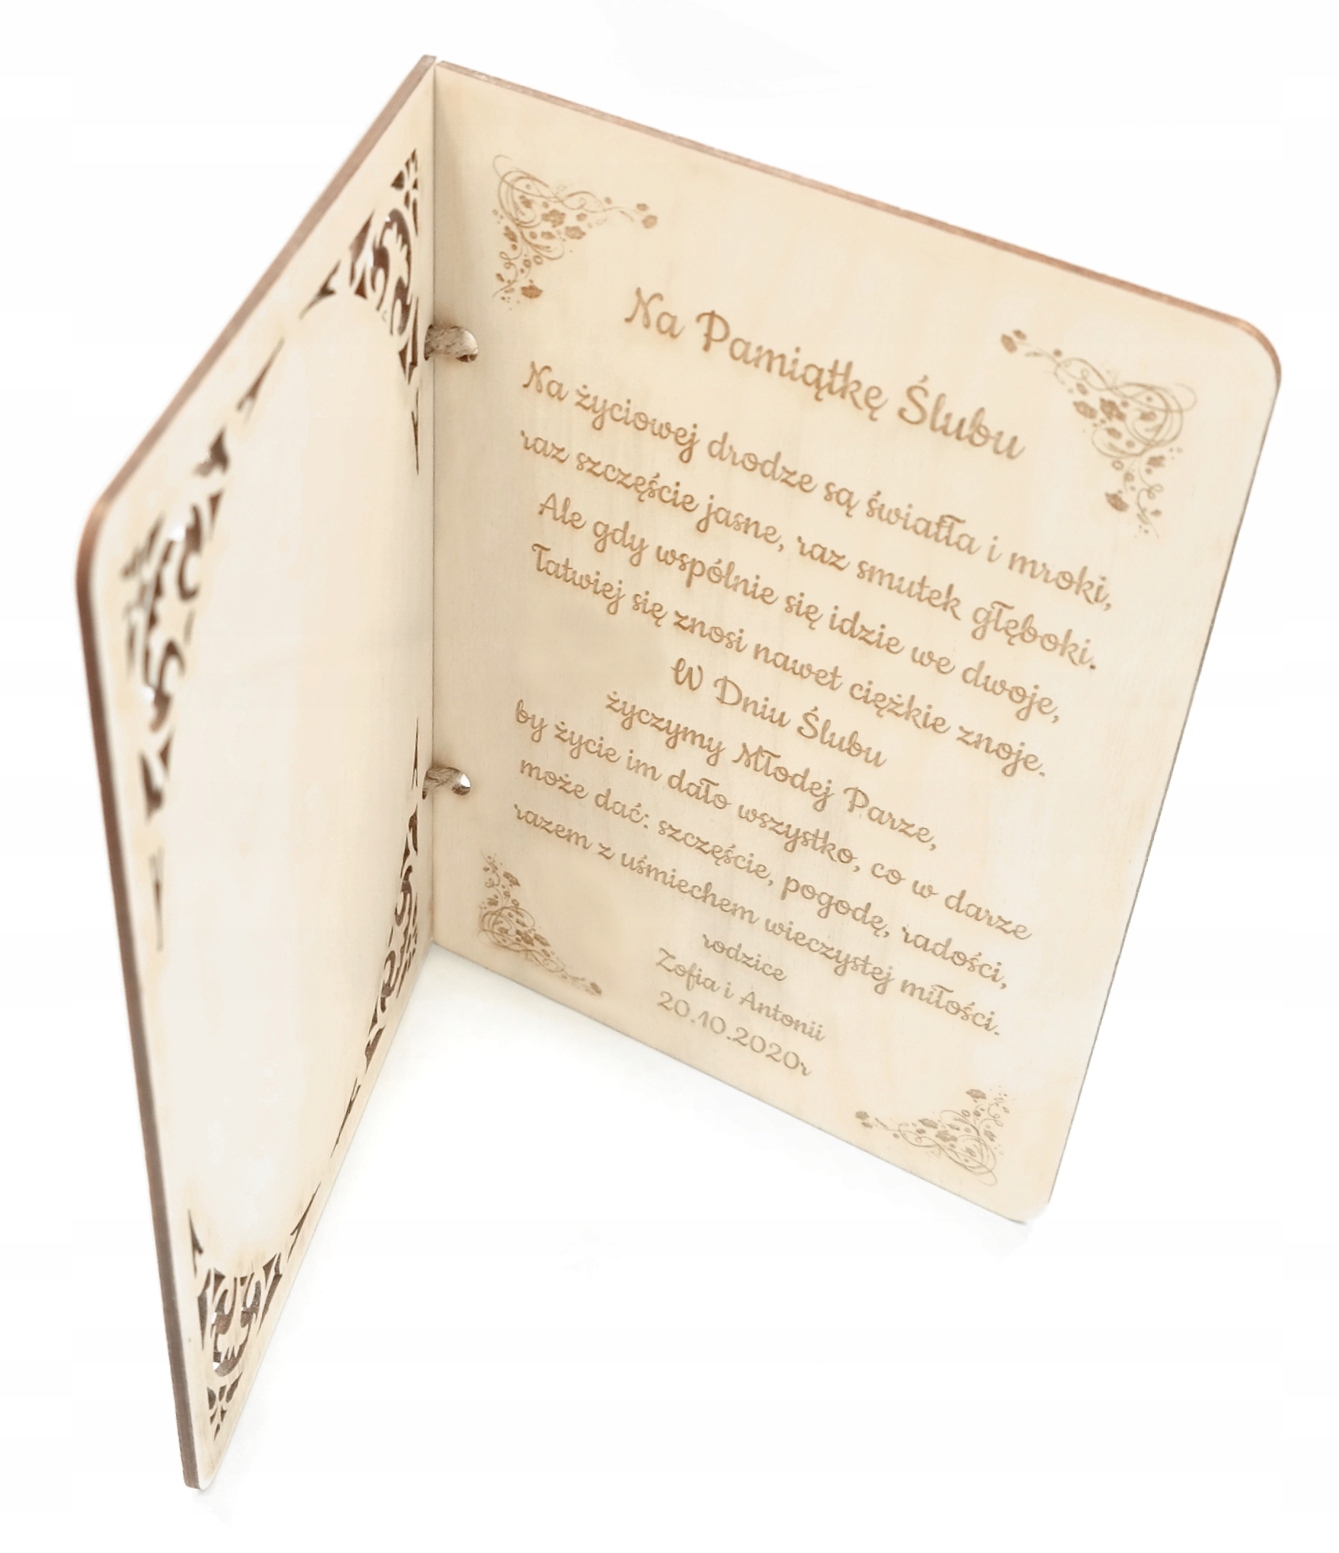 Na Pamiątkę Ślubu
Na życiowej drodze są światła i mroki,
raz szczęście jasne, raz smutek głęboki.
Ale gdy wspólnie się idzie we dwoje,
łatwiej się znosi nawet ciężkie znoje.
W Dniu Ślubu
życzymy Młodej Parze,
by życie im dało wszystko, co w darze
może dać: szczęście, pogodę, radości,
razem z uśmiechem wieczystej miłości.
rodzice
Zofia i Antonii
20.10.2020r